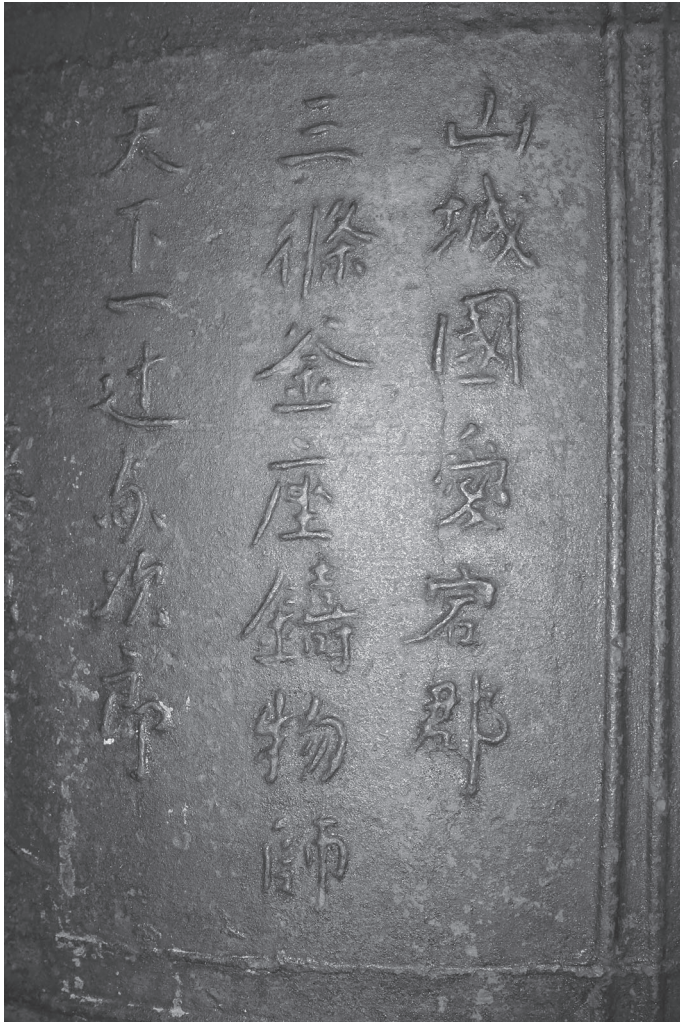 山城國愛宕郡
三條釜座鋳物師
天下一辻与次郎